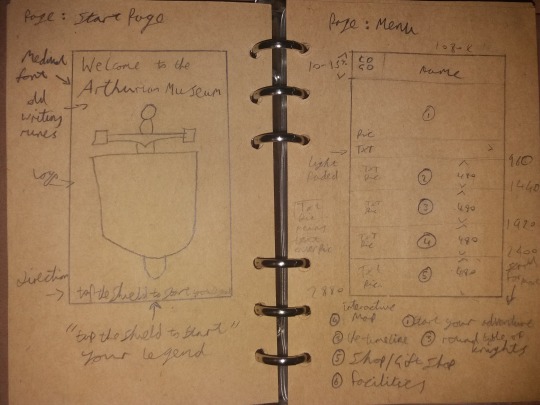 Page: Start Page
Welcome to the
Arthurian Museum
Medieval
font
old
writing
runes
Logo
Direction
tap the shield to start
"tap the shield to start"
your legend
Page: Menu
10-15%
LO
GO
Name
①
Pic
TxT
>
Light
960
TxT
Pic
② 480
1440
TxT
Pic
③ 480
1920
TxT
Pic
④ 480
2400
TxT
Pic
⑤ 480
2880
scroll
for more
Interactive
Map
① Start your adventure
③ round table of
knights
⑤ Shop/Gift Shop
⑥ Facilities